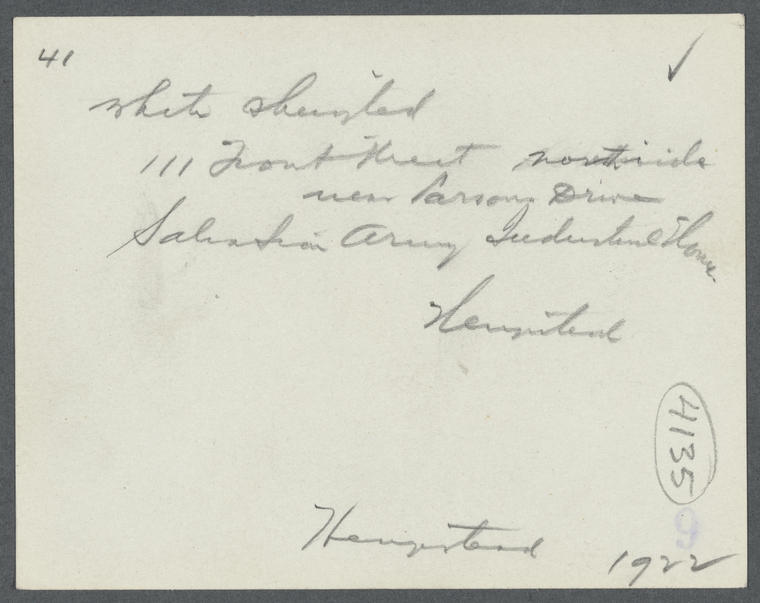 41
White shingled
111 Front Street northside
near Parsons Drive
Salvation Army Industrial Home
Hempstead
4135
9
Hempstead
1922